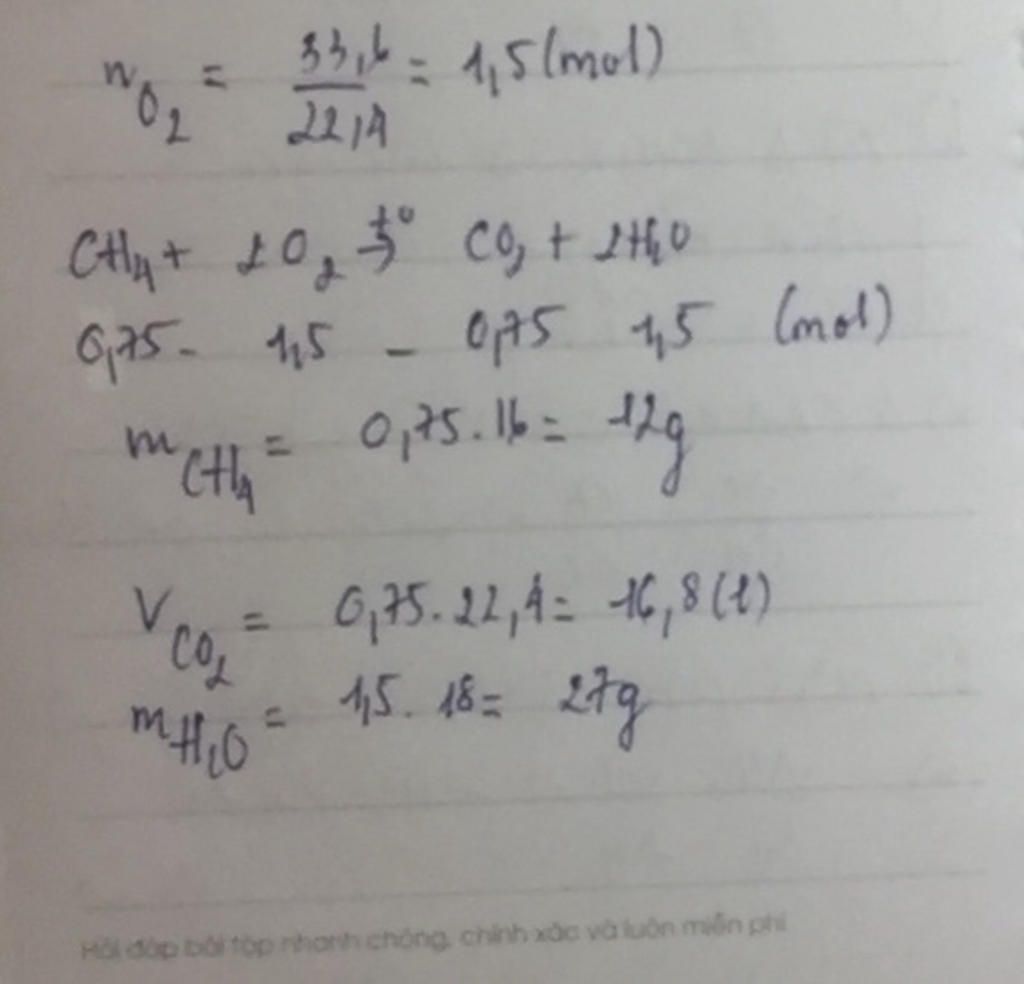 n O2 = 33,6/22,4 = 1,5 (mol)
CH4 + 2O2 t°→ CO2 + 2H2O
0,75 - 1,5 - 0,75 1,5 (mol)
m CH4 = 0,75 . 16 = 12g
V CO2 = 0,75 . 22,4 = 16,8 (l)
m H2O = 1,5 . 18 = 27g
Hỏi đáp bài tập nhanh chóng, chính xác và luôn miễn phí